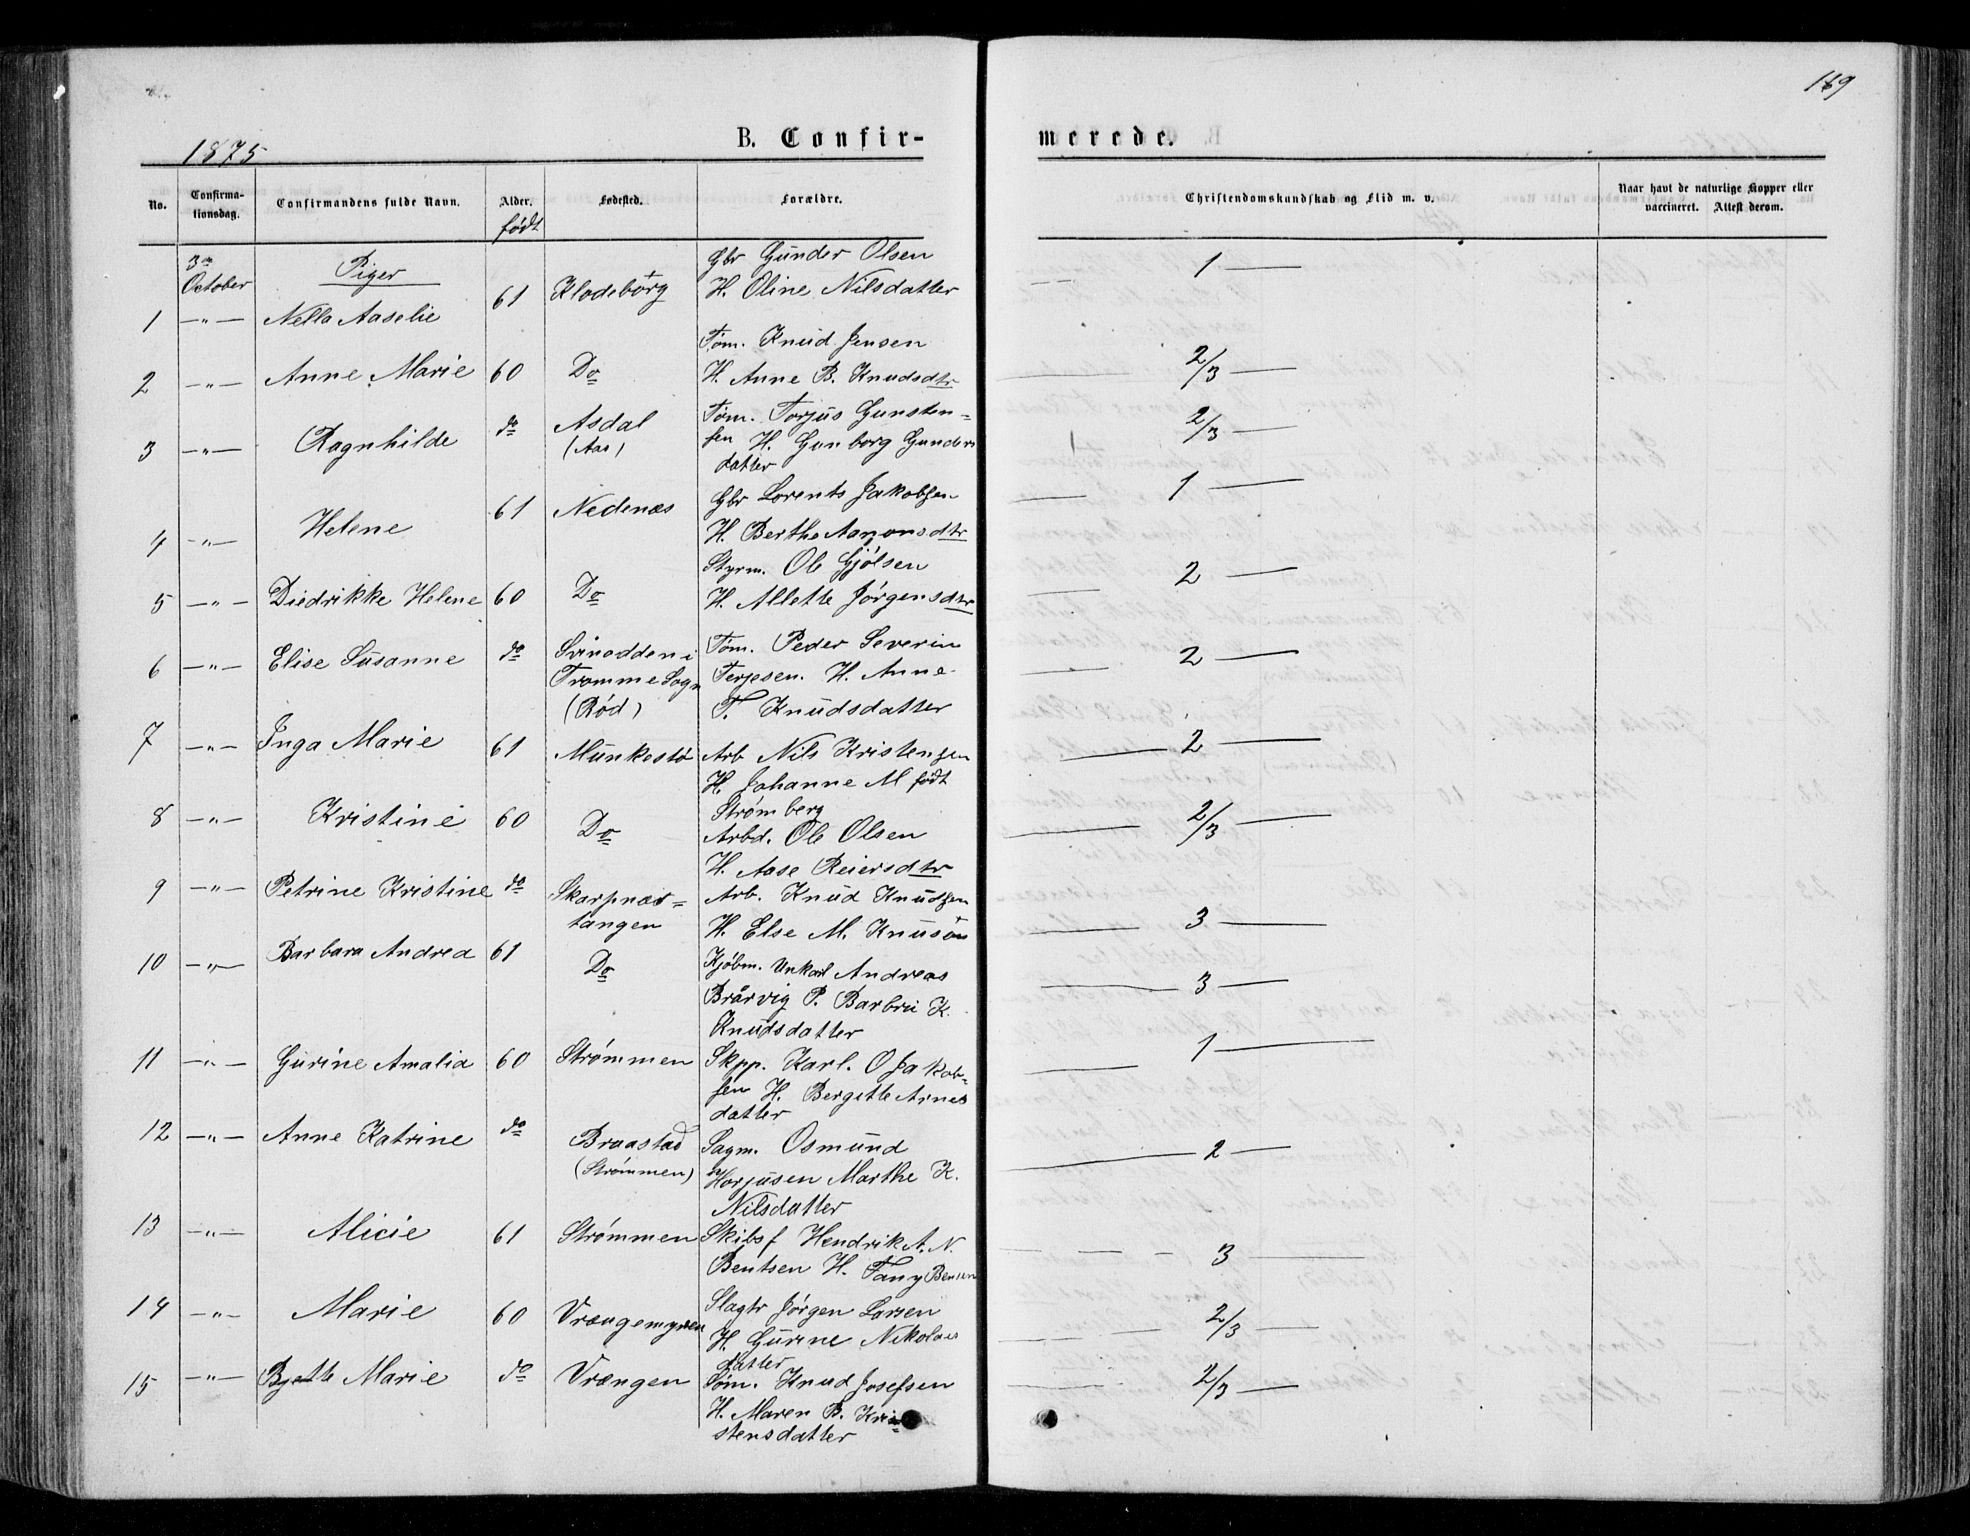 169
1875
B. Confir-
merede.
No.
Confirma-
tionsdag.
Confirmandens fulde Navn.
Alder.
født
Fødested.
Forældre.
Christendomskundskab og Flid m. v.
Naar havt de naturlige Kopper eller
vaccineret. Attest derom.
3die October Piger Gbr Gunder Olsen
1 -"- Nella Aaselie 61 Klodeborg H. Oline Nilsdatter 1
Tøm. Knud Jensen
2 -"- Anne Marie 60 Do H. Anne B. Knudsdtr 2/3
3 -"- Ragnhilde do Asdal Tøm. Torjus Gunsten=
(Aas) sen H. Gunborg Gunders 2/3
datter
4 -"- Helene 61 Nedenæs Gbr Lorents Jakobsen 1
H. Berthe Aanonsdtr
Styrm. Ole Gjølsen
5 -"- Diedrikke Helene 60 Do H. Allette Jørgensdtr 2
6 -"- Elise Susanne do Svinodden i Tøm. Peder Severin 2
Tromme Sogn Terjesen. H. Anne
(Rød) T. Knudsdatter
7 -"- Inga Marie 61 Munkestø Arb Nils Kristensen 2
H. Johanne M født
Strømberg
8 -"- Kristine 60 Do Arbd. Ole Olsen 2/3
H. Aase Reiersdtr
9 -"- Petrine Kristine do Skarpnæs= Arb. Knud Knudsen
tangen H. Else M. 3
10 -"- Barbara Andrea 61 Do Kjøbm. Unkarl Andreas 3
Brårvig P. Barbru K.
Knudsdatter
11 -"- Gurine Amalia 60 Strømmen Skpp. Karl. O Jakob= 1
sen H. Bergitte Arnes
datter
12 -"- Anne Katrine do Braastad Sagm. Osmund 2
(Strømmen) Horjusen Marthe K.
Nilsdatter
13 -"- Alicie 61 Strømmen Skibsf Hendrik A. N. 3
Bentsen H. Fany
14 -"- Marie 60 Vrængemyren Slagtr Jørgen Larsen 2/3
H. Gurine Nikolais
datter
15 -"- Bjette Marie do Vrængen Tøm. Knud Josefsen 2/3
H. Maren B. Kri=
stensdatter